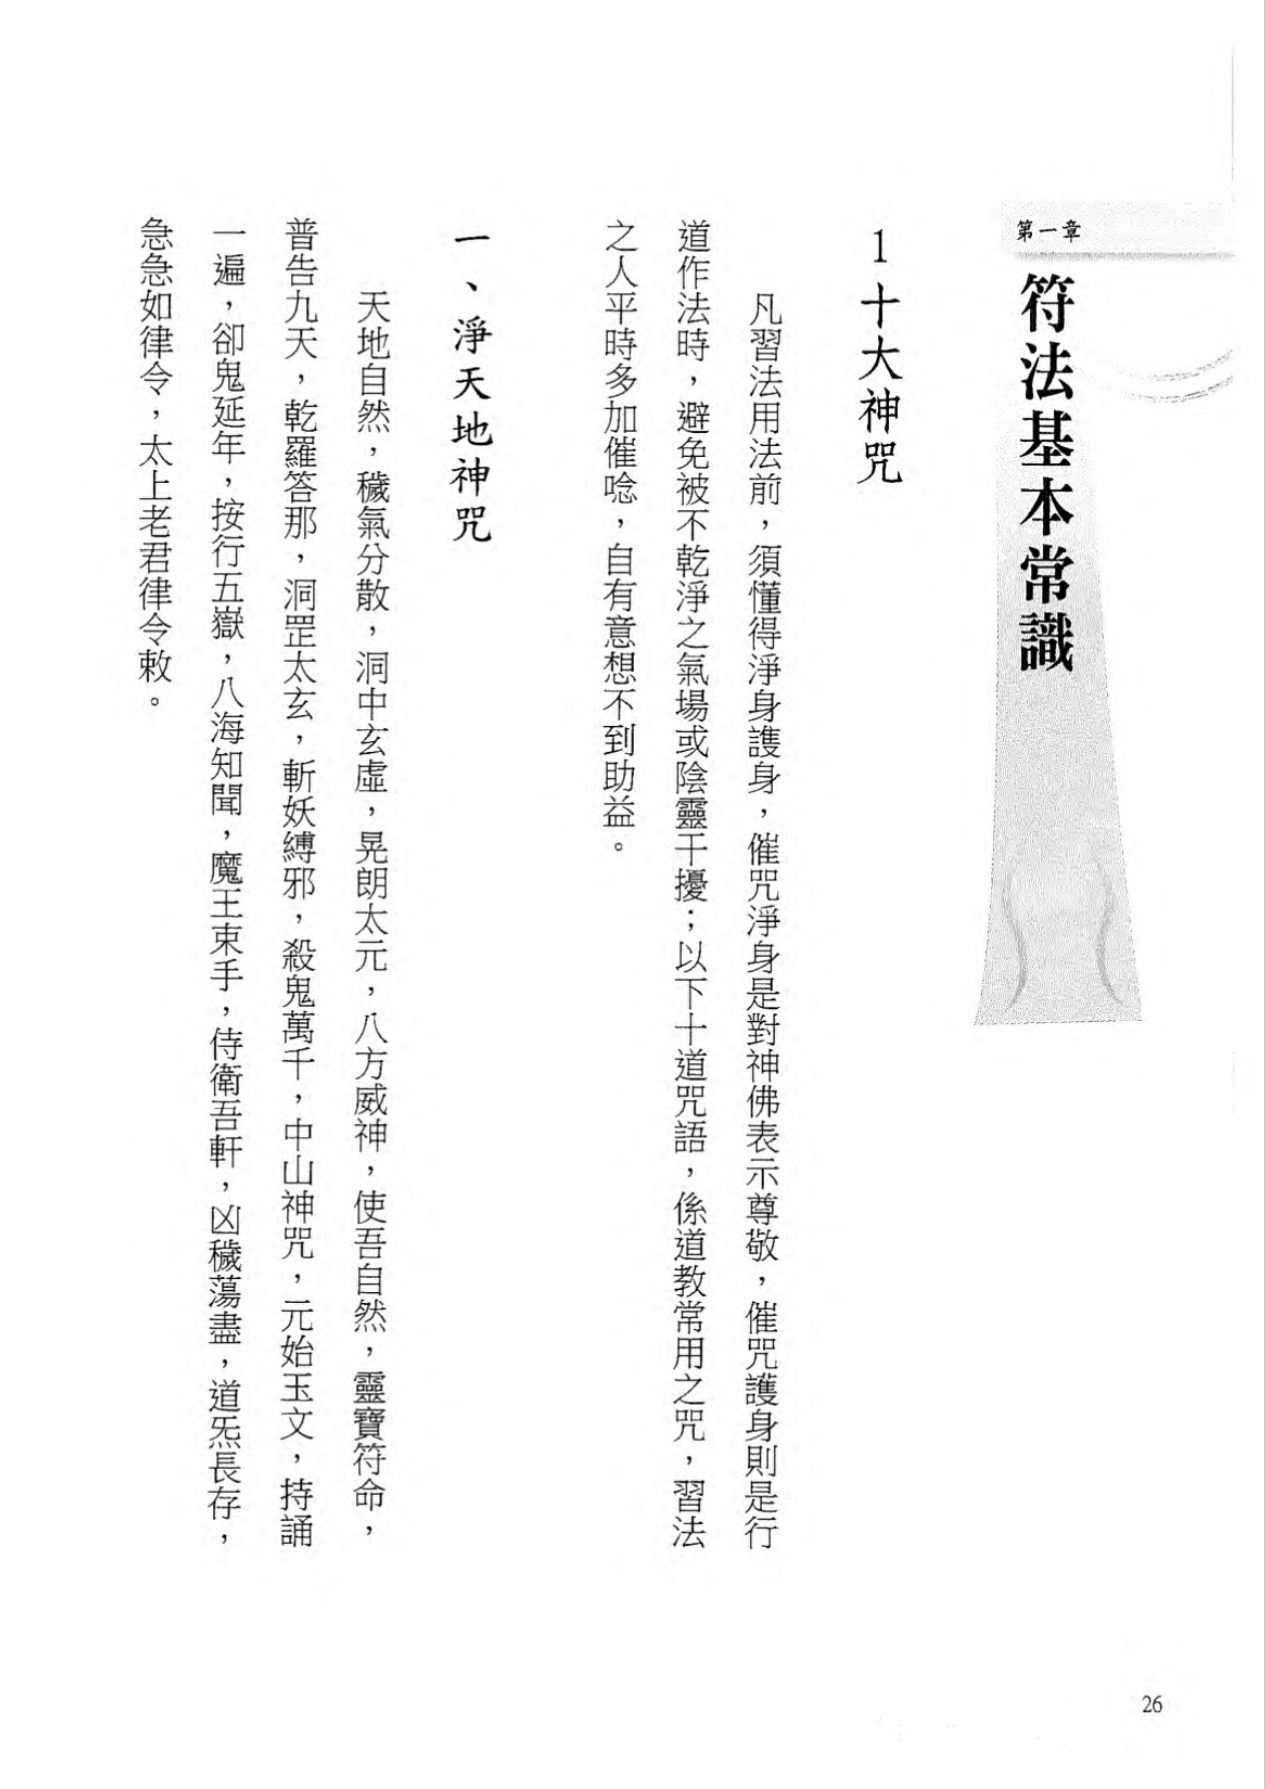 第一章
符法基本常識
1十大神咒
凡習法用法前，須懂得淨身護身，催咒淨身是對神佛表示尊敬，催咒護身則是行
道作法時，避免被不乾淨之氣場或陰靈干擾；以下十道咒語，係道教常用之咒，習法
之人平時多加催唸，自有意想不到助益。
一、淨天地神咒
天地自然，穢氣分散，洞中玄虛，晃朗太元，八方威神，使吾自然，靈寶符命，
普告九天，乾羅答那，洞罡太玄，斬妖縛邪，殺鬼萬千，中山神咒，元始玉文，持誦
一遍，卻鬼延年，按行五嶽，八海知聞，魔王束手，侍衛吾軒，凶穢蕩盡，道炁長存，
急急如律令，太上老君律令敕。
26